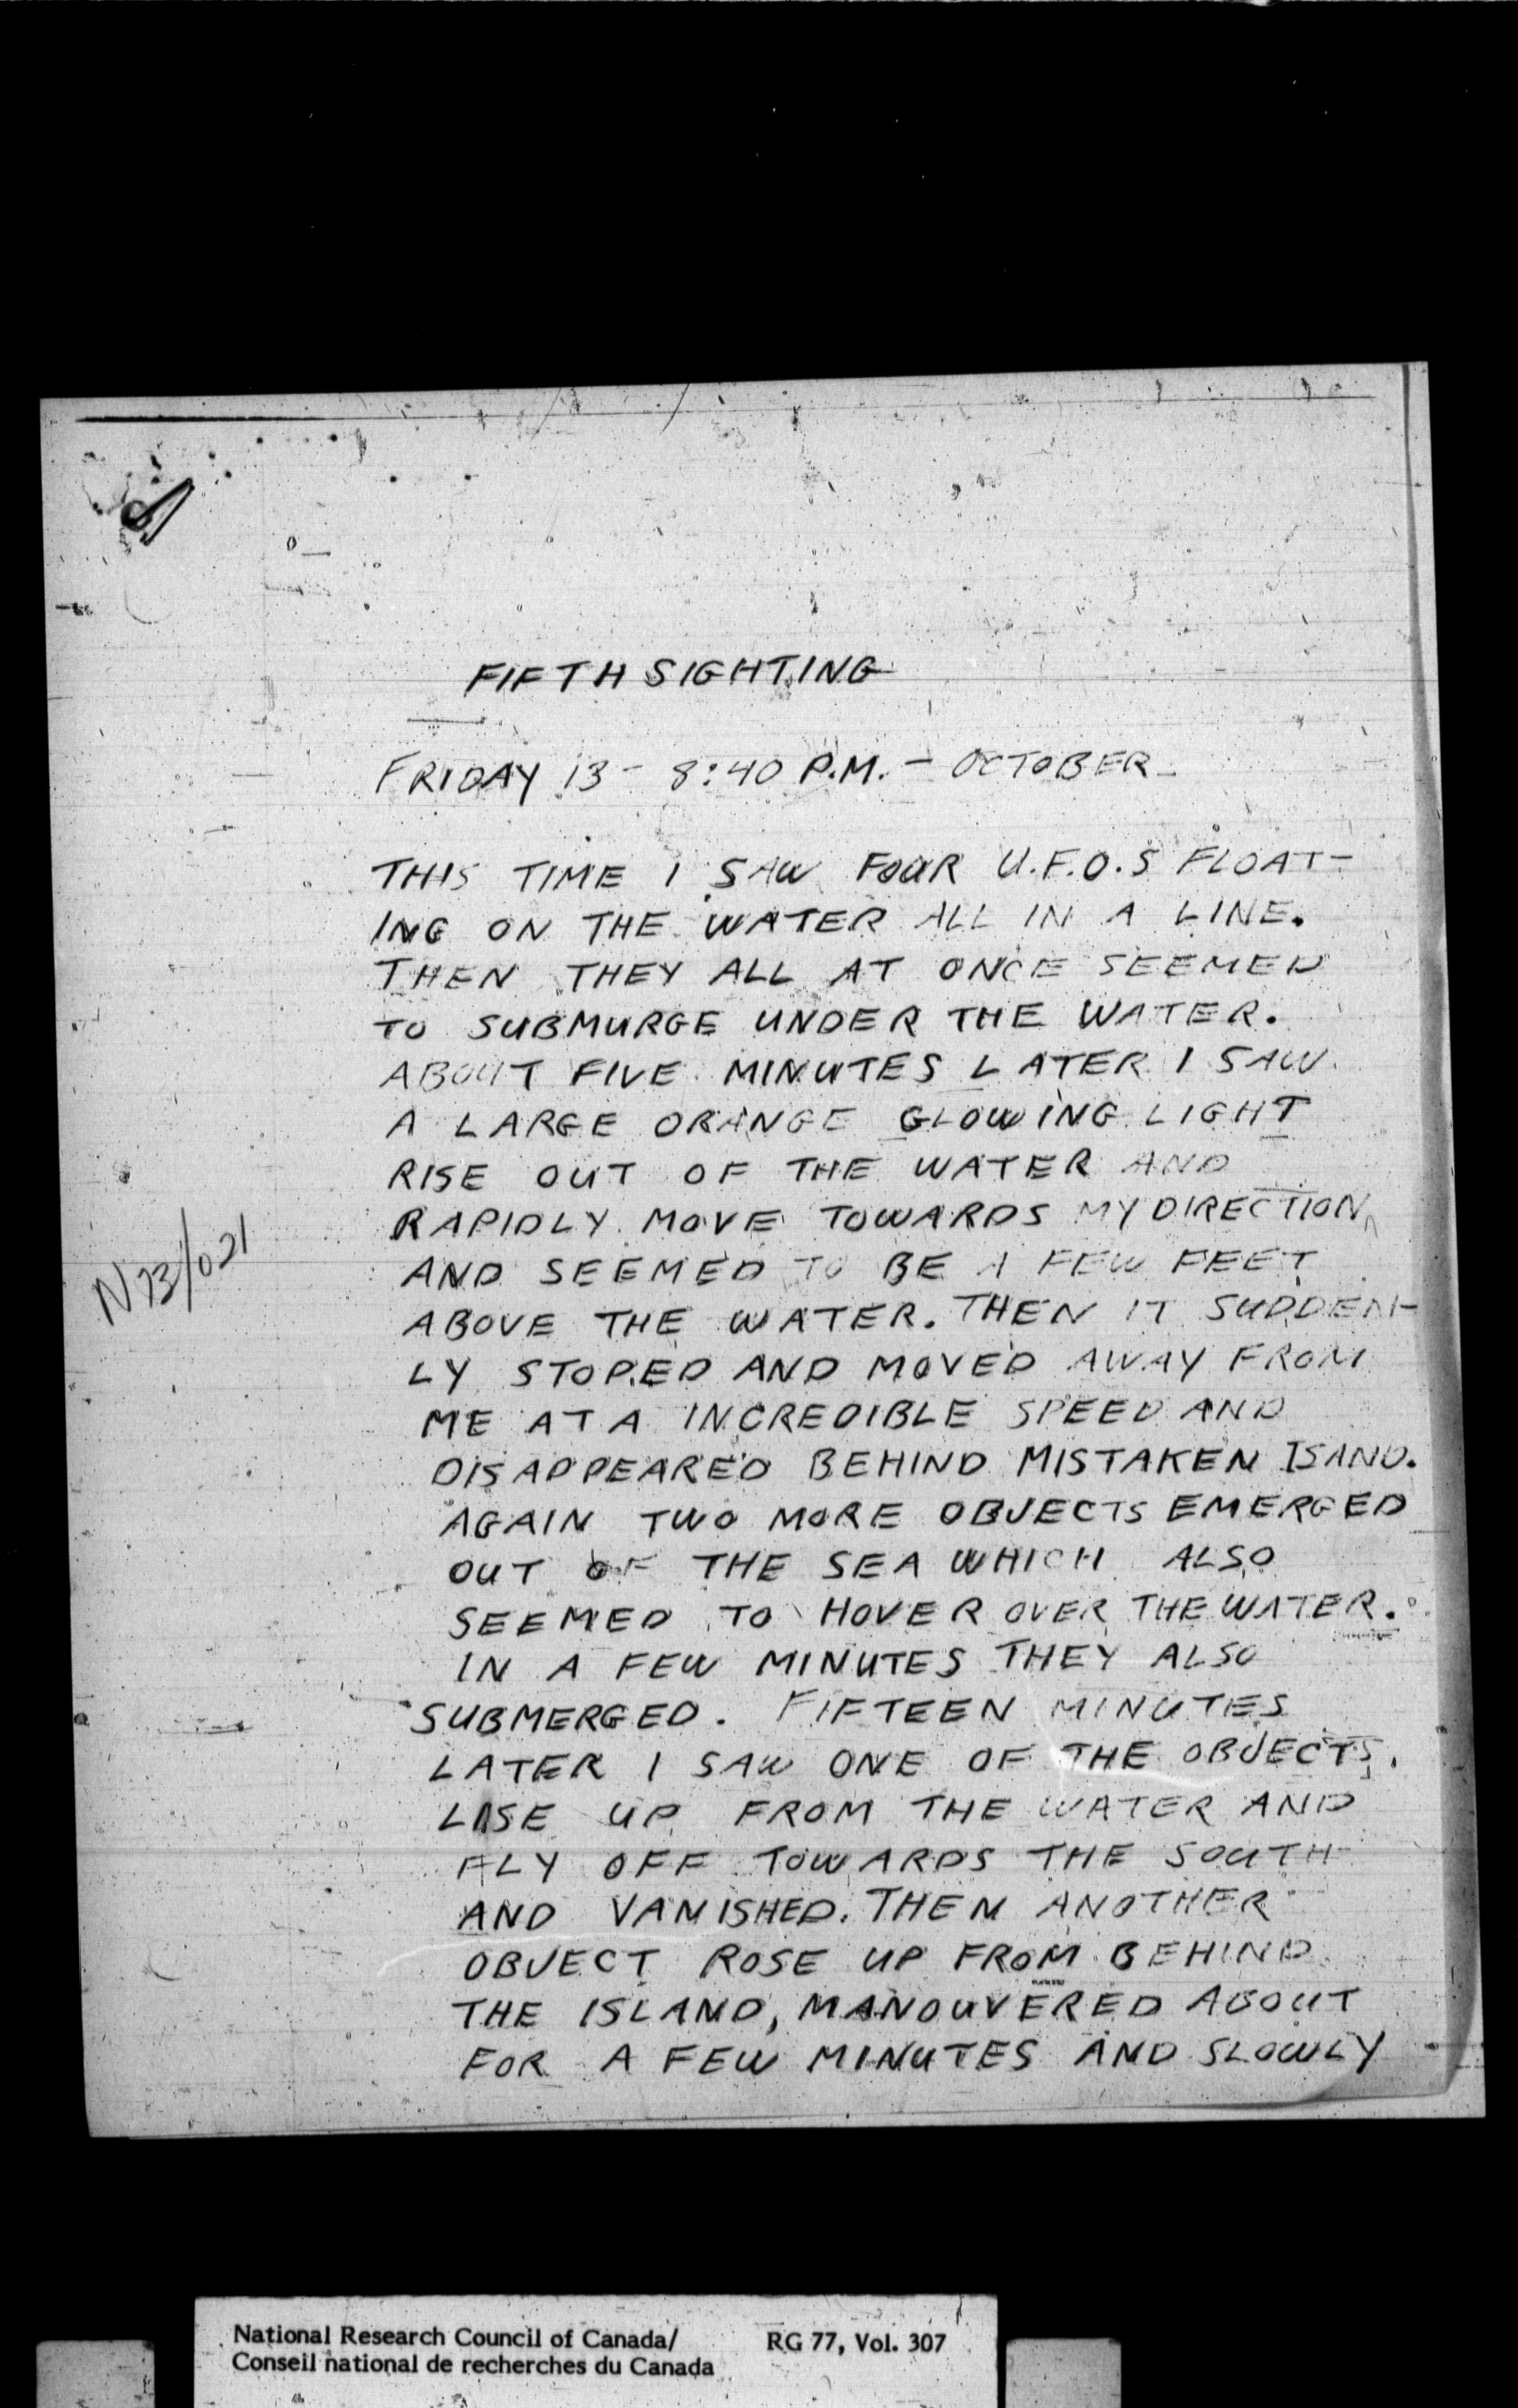 FIFTH SIGHTING
FRIDAY 13 - 8:40 P.M. - OCTOBER
THIS TIME I SAW FOUR U.F.O.S FLOAT-
ING ON THE WATER ALL IN A LINE.
THEN THEY ALL AT ONCE SEEMED
TO SUBMURGE UNDER THE WATER.
ABOUT FIVE MINUTES LATER I SAW
A LARGE ORANGE GLOWING LIGHT
RISE OUT OF THE WATER AND
RAPIDLY MOVE TOWARDS MY DIRECTION
AND SEEMED TO BE A FEW FEET
ABOVE THE WATER. THEN IT SUDDEN-
LY STOPED AND MOVED AWAY FROM
N73/021
ME AT A INCREDIBLE SPEED AND
DISAPPEARED BEHIND MISTAKEN ISAND.
AGAIN TWO MORE OBJECTS EMERGED
OUT OF THE SEA WHICH ALSO
SEEMED TO HOVER OVER THE WATER.
IN A FEW MINUTES THEY ALSO
SUBMERGED. FIFTEEN MINUTES
LATER I SAW ONE OF THE OBJECTS
UP FROM THE WATER AND
FLY OFF TOWARDS THE SOUTH
AND VANISHED. THEN ANOTHER
OBJECT ROSE UP FROM BEHIND
THE ISLAND, MANOUVERED ABOUT
FOR A FEW MINUTES AND SLOWLY
National Research Council of Canada/ RG 77, Vol. 307
Conseil national de recherches du Canada